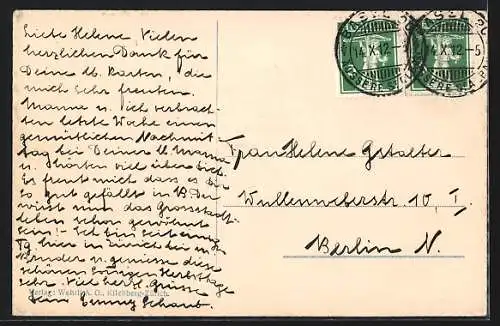 Liebe Helene! Vielen
herzlichen Dank für
Deine lb. Karten, die
mich sehr freuten.
Mamma u. ich verbrach-
ten letzte Woche einen
gemütlichen Nachmit-
tag bei Deiner lb. Mamma
u. hörten viel über Dich.
Es freut mich dass es Dir
so gut gefällt in B. Du
wirst nun das Grossstadt-
leben schon gewöhnt
sein! - Ich bin seit einig.
Tg. hier in Zürich bei m.
Bruder u. geniesse diese
schönen sonnigen Herbsttage
sehr. Viele herzl. Grüsse
Dein Emmy Schaub.
Frau Helene Gstalter
Wullenweberstr. 10, I
Berlin N.
14.X.12-5
14.X.12-5
Verlag: Wehrli A. G., Kilchberg-Zürich.